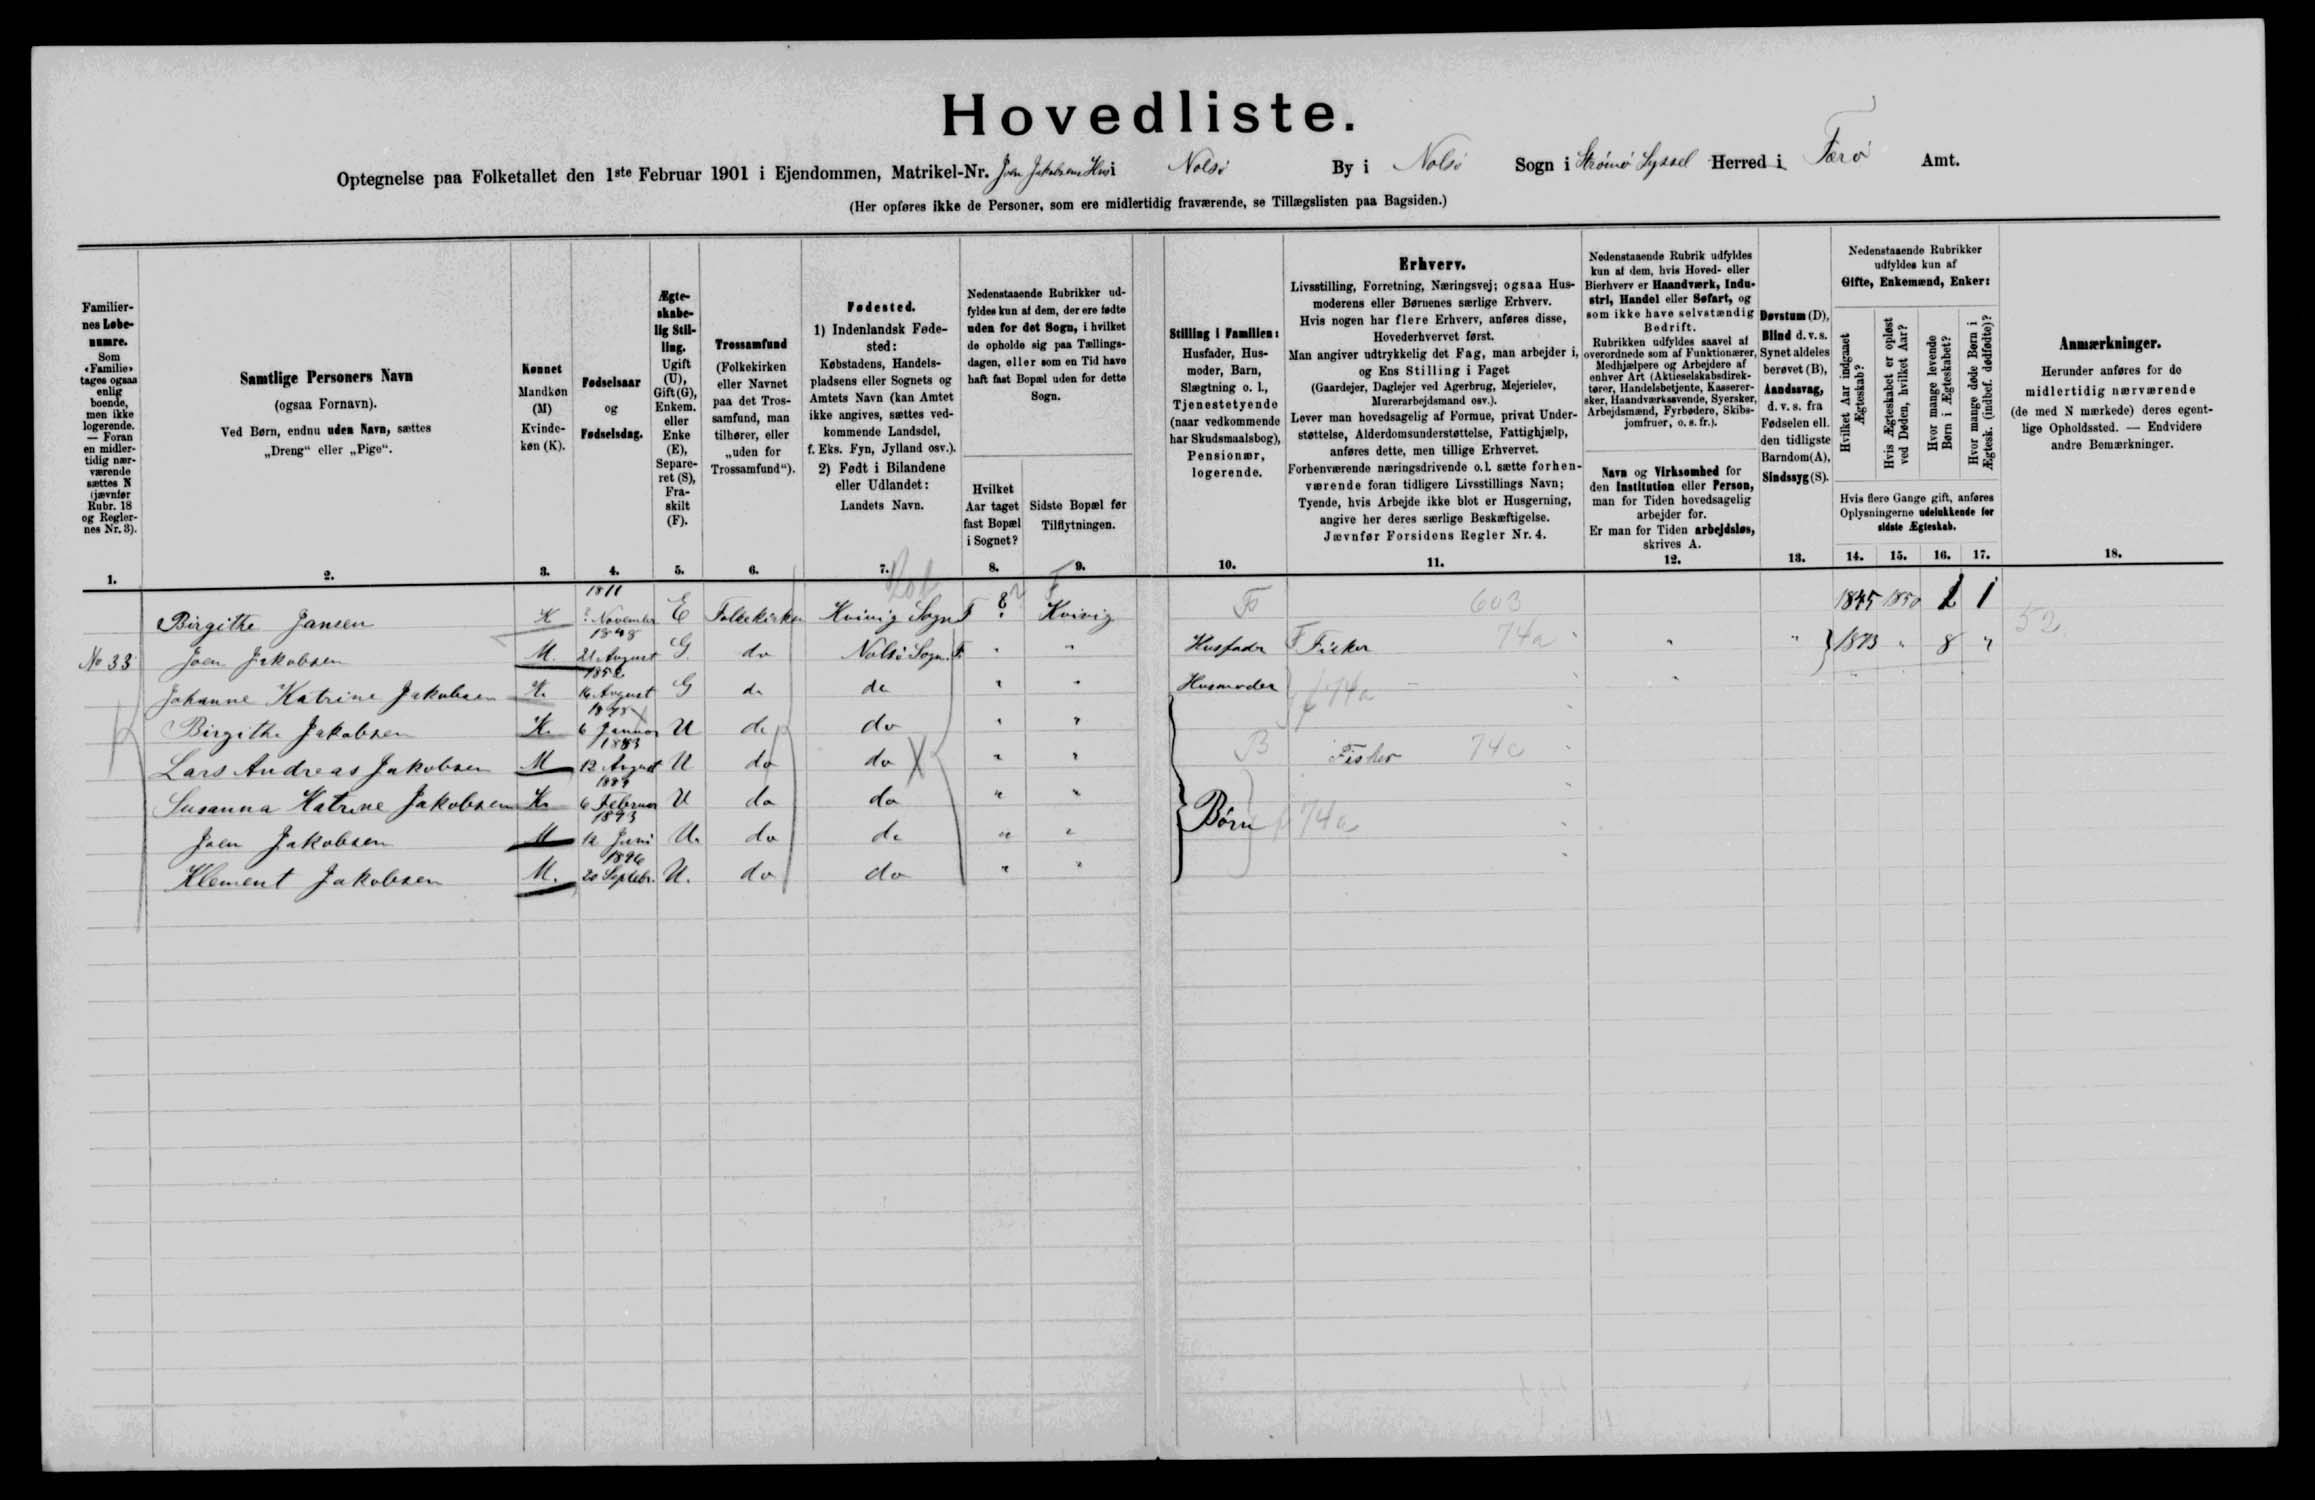 Hovedliste.
Optegnelse paa Folketallet den 1ste Februar 1901 i Ejendommen, Matrikel-Nr. Joen Jakobsens Hus i Nolsö By i Nolsö Sogn i Strömö Syssel Herred i Færö Amt.
(Her opføres ikke de Personer, som ere midlertidig fraværende, se Tillægslisten paa Bagsiden.)
Familier-
nes Løbe-
numre.
Som
«Familie»
tages ogsaa
enlig
boende,
men ikke
logerende.
— Foran
en midler-
tidig nær-
værende
sættes N
(jævnfør
Rubr. 18
og Regler-
nes Nr. 3).
1.
Samtlige Personers Navn
(ogsaa Fornavn).
Ved Børn, endnu uden Navn, sættes
„Dreng“ eller „Pige“.
2.
Kønnet
Mandkøn
(M)
Kvinde-
køn (K).
3.
Fødselsaar
og
Fødselsdag.
4.
Ægte-
skabe-
lig Stil-
ling.
Ugift
(U),
Gift (G),
Enkem.
eller
Enke
(E),
Separe-
ret (S),
Fra-
skilt
(F).
5.
Trossamfund
(Folkekirken
eller Navnet
paa det Tros-
samfund, man
tilhører, eller
„uden for
Trossamfund“).
6.
Fødested.
1) Indenlandsk Føde-
sted:
Købstadens, Handels-
pladsens eller Sognets og
Amtets Navn (kan Amtet
ikke angives, sættes ved-
kommende Landsdel,
f. Eks. Fyn, Jylland osv.).
2) Født i Bilandene
eller Udlandet:
Landets Navn.
7.
Nedenstaaende Rubrikker ud-
fyldes kun af dem, der ere fødte
uden for det Sogn, i hvilket
de opholde sig paa Tællings-
dagen, eller som en Tid have
haft fast Bopæl uden for dette
Sogn.
Hvilket
Aar taget
fast Bopæl
i Sognet?
8.
Sidste Bopæl før
Tilflytningen.
9.
Stilling i Familien:
Husfader, Hus-
moder, Barn,
Slægtning o. l.,
Tjenestetyende
(naar vedkommende
har Skudsmaalsbog),
Pensionær,
logerende.
10.
Erhverv.
Livsstilling, Forretning, Næringsvej; ogsaa Hus-
moderens eller Børnenes særlige Erhverv.
Hvis nogen har flere Erhverv, anføres disse,
Hovederhvervet først.
Man angiver udtrykkelig det Fag, man arbejder i,
og Ens Stilling i Faget
(Gaardejer, Daglejer ved Agerbrug, Mejerielev,
Murerarbejdsmand osv.).
Lever man hovedsagelig af Formue, privat Under-
støttelse, Alderdomsunderstøttelse, Fattighjælp,
anføres dette, men tillige Erhvervet.
Forhenværende næringsdrivende o. l. sætte forhen-
værende foran tidligere Livsstillings Navn;
Tyende, hvis Arbejde ikke blot er Husgerning,
angive her deres særlige Beskæftigelse.
Jævnfør Forsidens Regler Nr. 4.
11.
Nedenstaaende Rubrik udfyldes
kun af dem, hvis Hoved- eller
Bierhverv er Haandværk, Indu-
stri, Handel eller Søfart, og
som ikke have selvstændig
Bedrift.
Rubrikken udfyldes saavel af
overordnede som af Funktionærer,
Medhjælpere og Arbejdere af
enhver Art (Aktieselskabsdirek-
tører, Handelsbetjente, Kasserer-
sker, Haandværkssvende, Syersker,
Arbejdsmænd, Fyrbødere, Skibs-
jomfruer, o. s. fr.).
Navn og Virksomhed for
den Institution eller Person,
man for Tiden hovedsagelig
arbejder for.
Er man for Tiden arbejdsløs,
skrives A.
12.
Døvstum (D),
Blind d. v. s.
Synet aldeles
berøvet (B),
Aandssvag,
d. v. s. fra
Fødselen ell.
den tidligste
Barndom (A),
Sindssyg (S).
13.
Nedenstaaende Rubrikker
udfyldes kun af
Gifte, Enkemænd, Enker:
Hvilket Aar indgaaet
Ægteskab?
Hvis Ægteskabet er opløst
ved Døden, hvilket Aar?
Hvor mange levende
Børn i Ægteskabet?
Hvor mange døde Børn i
Ægtesk. (indbef. dødfødte)?
Hvis flere Gange gift, anføres
Oplysningerne udelukkende for
sidste Ægteskab.
14. 15. 16. 17.
Anmærkninger.
Herunder anføres for de
midlertidig nærværende
(de med N mærkede) deres egent-
lige Opholdssted. — Endvidere
andre Bemærkninger.
18.
Birgithe Jansen K 1811 ? November E Folkekirken Kvivig Sogn F ? Kvivig 603 1845 1850 1 52
No 33 Joen Jakobsen M. 1848 21 August G. do Nolsö Sogn. F. " " Husfader F Fisker 74a " " 1873 " 8 "
Johanne Katrine Jakobsen K. 1852 16 August G do do " " Husmoder 74a "
Birgithe Jakobsen K. 6 Januar U do do " "
Lars Andreas Jakobsen M 1883 12 August U do do " " B Fisker 74c
Susanna Katrine Jakobsen K. 1889 6 Februar U do do " "
Børn 74a
Joen Jakobsen M 1893 12 Juni U. do do " "
Klement Jakobsen M. 1896 20 Septebr. U. do do " "